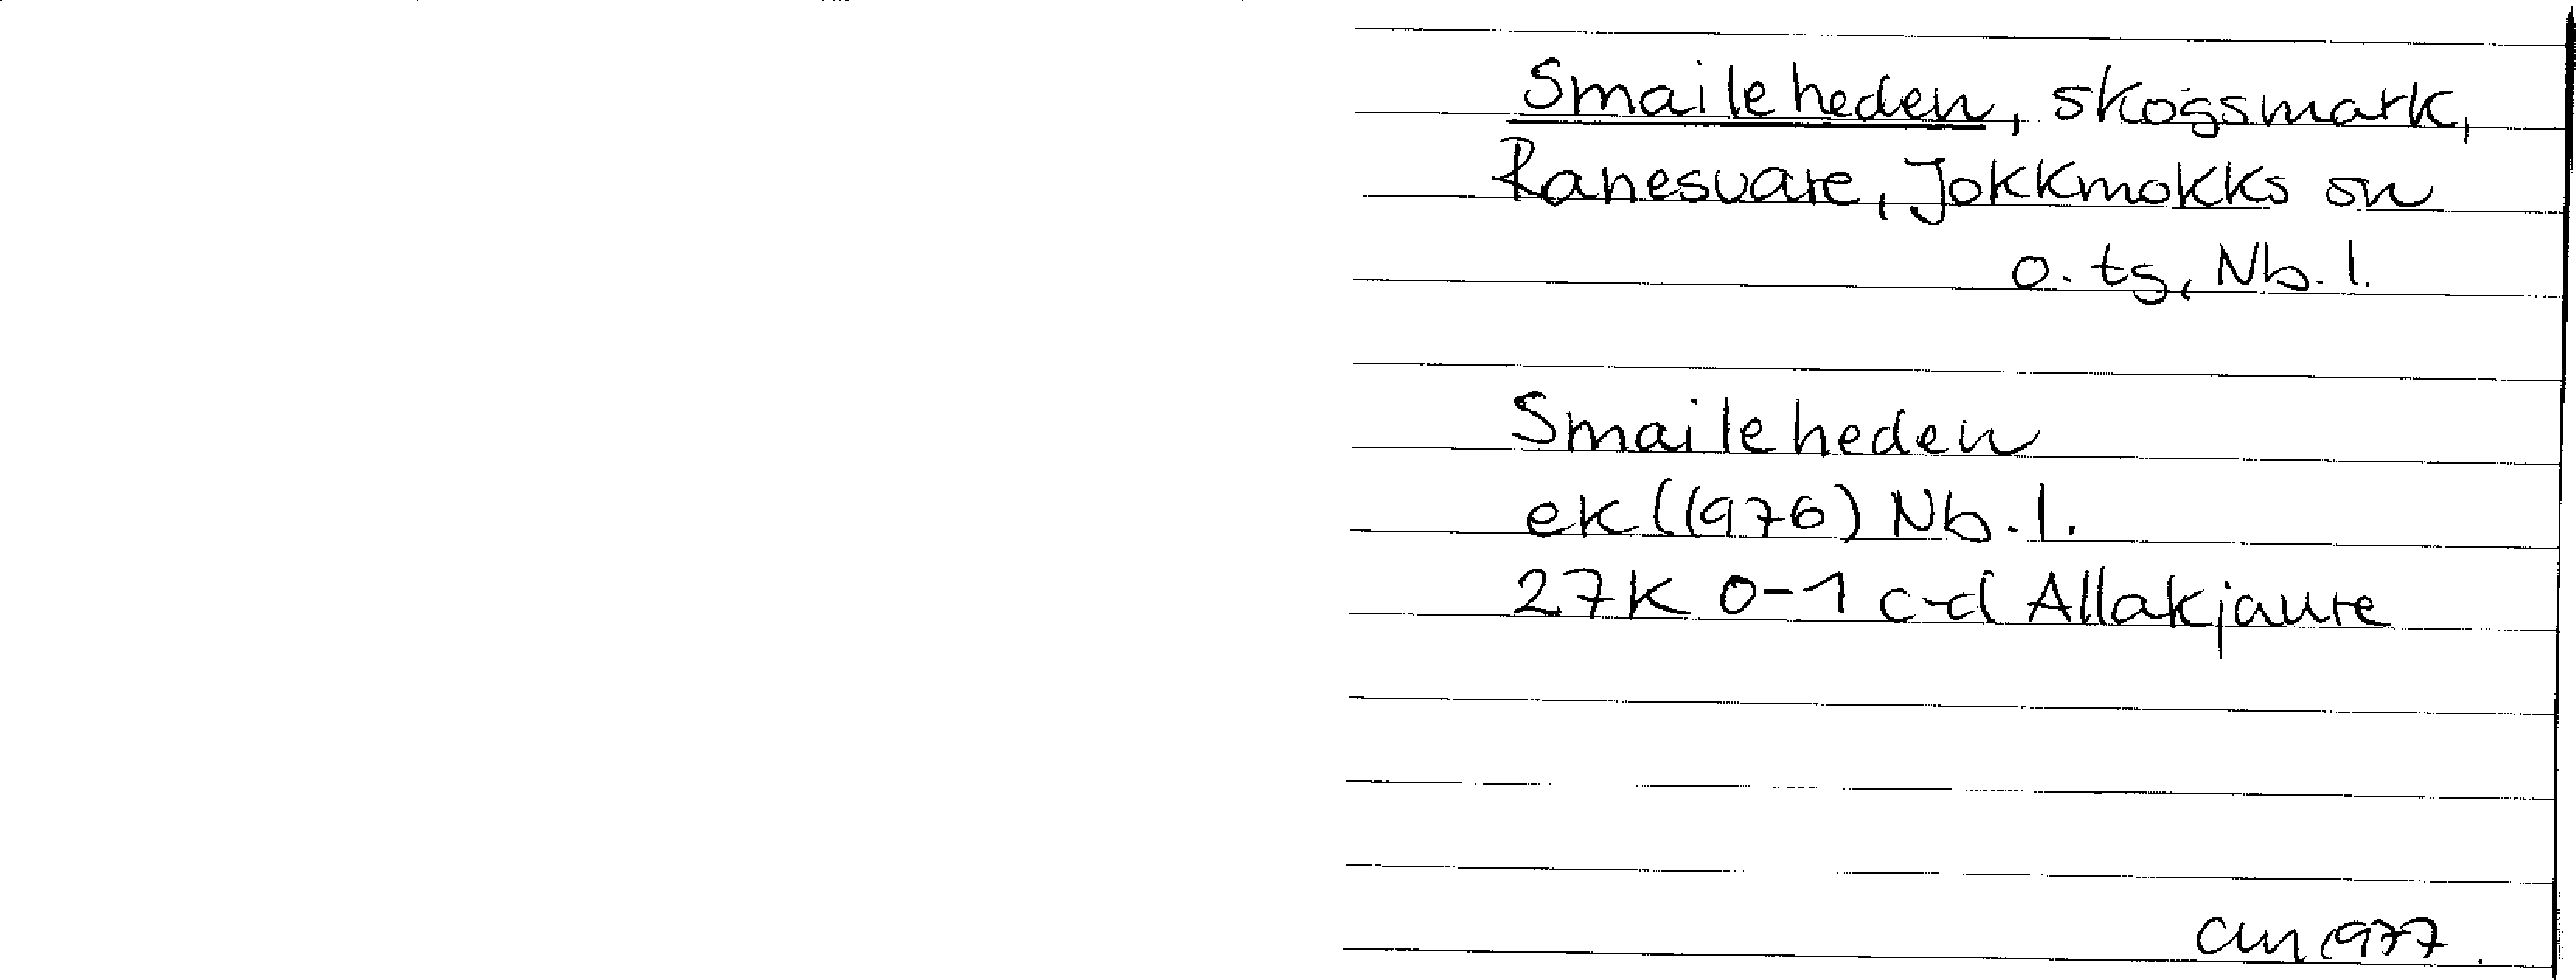 Smaileheden, skogsmark,
Ranesvare, Jokkmokks sn
o. tg, Nb. l.
Smaileheden
ek (1976) Nb. l.
27K 0-1 c-d Allakjaure
1977